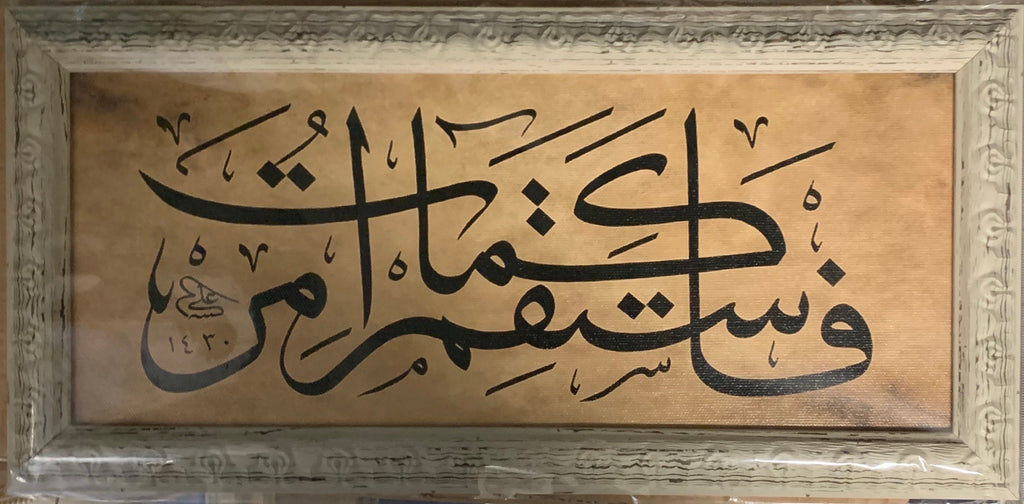 فاستقم كما امرت
علي
١٤٣٠